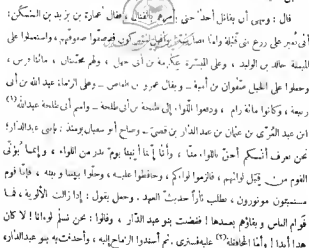 قال : ونهى أن يقاتل أحدٌ حتى يأمره بالقتال ، فقال عمارة بن يزيد بن السكن:
أنى نُغير على زرع بنى قَيْلة ولمّا نضارب ! وأقبل المشركون قد صفّوا صفوفهم ، واستعملوا على
الميمنة خالد بن الوليد ، وعلى الميسرة عِكْرِمة بن أبى جهل ، ولهم مجنّبتان ، مائتا فرس ،
وجعلوا على الخيل صفوان بن أمية ــ ويقال عمرو بن العاص ــ وعلى الرّماة عبد الله بن أبى
ربيعة ، وكانوا مائة رامٍ ، ودفعوا اللّواء إلى طلحة بن أبى طلحة ــ واسم أبى طلحة عبد الله (١)
ابن عبد العُزّى بن عثمان بن عبد الدّار بن قصىّ ــ وصاح أبو سفيان يومئذ : يابنى عبد الدار ،
نحن نعرف أنكم أحقّ باللواء منّا ، وأنّا إنما أتينا يوم بدر من اللواء ، وإنما يُؤتَى
القوم من قِبَل لوائهم ، فالزموا لواءكم ، وحافظوا عليه ، وخلّوا بيننا وبينه ، فإنّا قوم
مستميتون موتورون ، نطلب ثأراً حديث العهد . وجعل يقول : إذا زالت الألوية ، فما
قوام الناس وبقاؤهم بعدها ! فغضبت بنو عبد الدار ، وقالوا : نحن نُسلم لواءنا ! لا كان
هذا أبداً ! وأمّا المحافظة (٢) عليه فسترى . ثم أسندوا الرّماح إليه ، وأحدقت به بنو عبد الدار ،